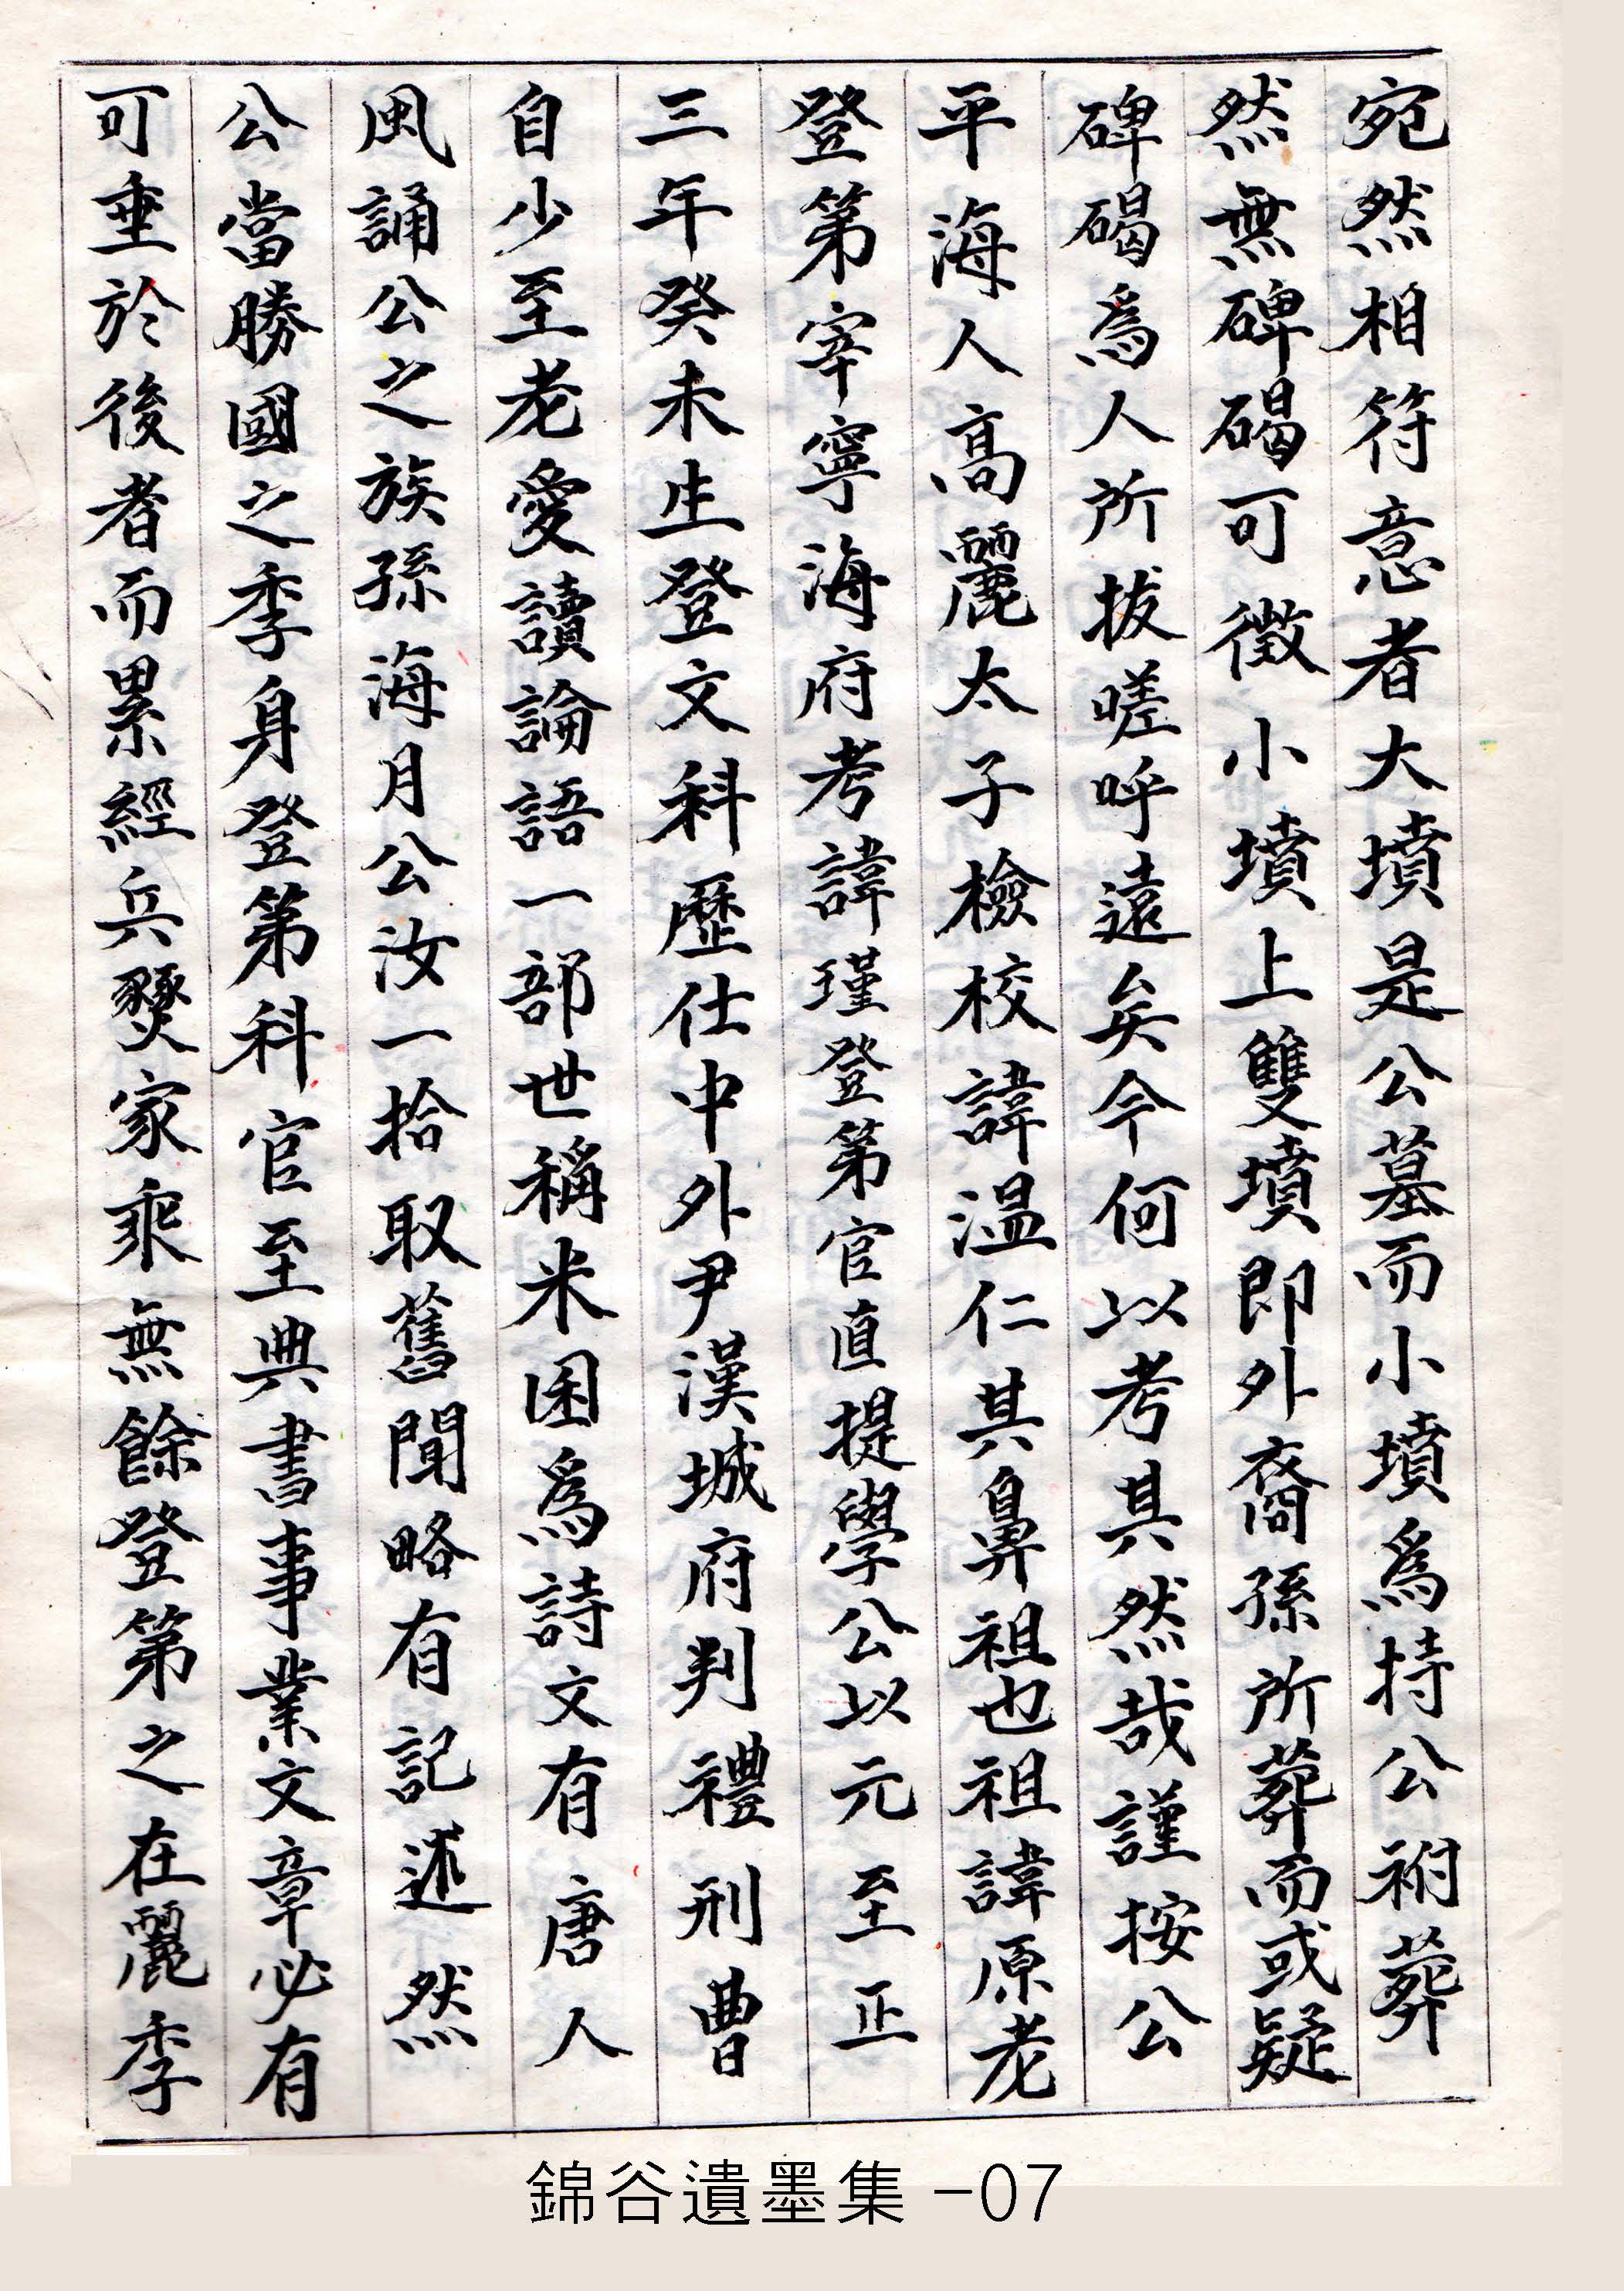 宛然相符意者大墳是公墓而小墳爲持公祔葬
然無碑碣可徵小墳上雙墳即外裔孫所葬而或疑
碑碣爲人所拔嗟呼遠矣今何以考其然哉謹按公
平海人高麗太子檢校諱温仁其鼻祖也祖諱原老
登第宰寧海府考諱瑾登第官直提學公以元至正
三年癸未生登文科歷仕中外尹漢城府判禮刑曹
自少至老愛讀論語一部世稱米困爲詩文有唐人
風誦公之族孫海月公汝一拾取舊聞略有記述然
公當勝國之季身登第科官至典書事業文章必有
可垂於後者而累經兵燹家乘無餘登第之在麗季
錦谷遺墨集 -07